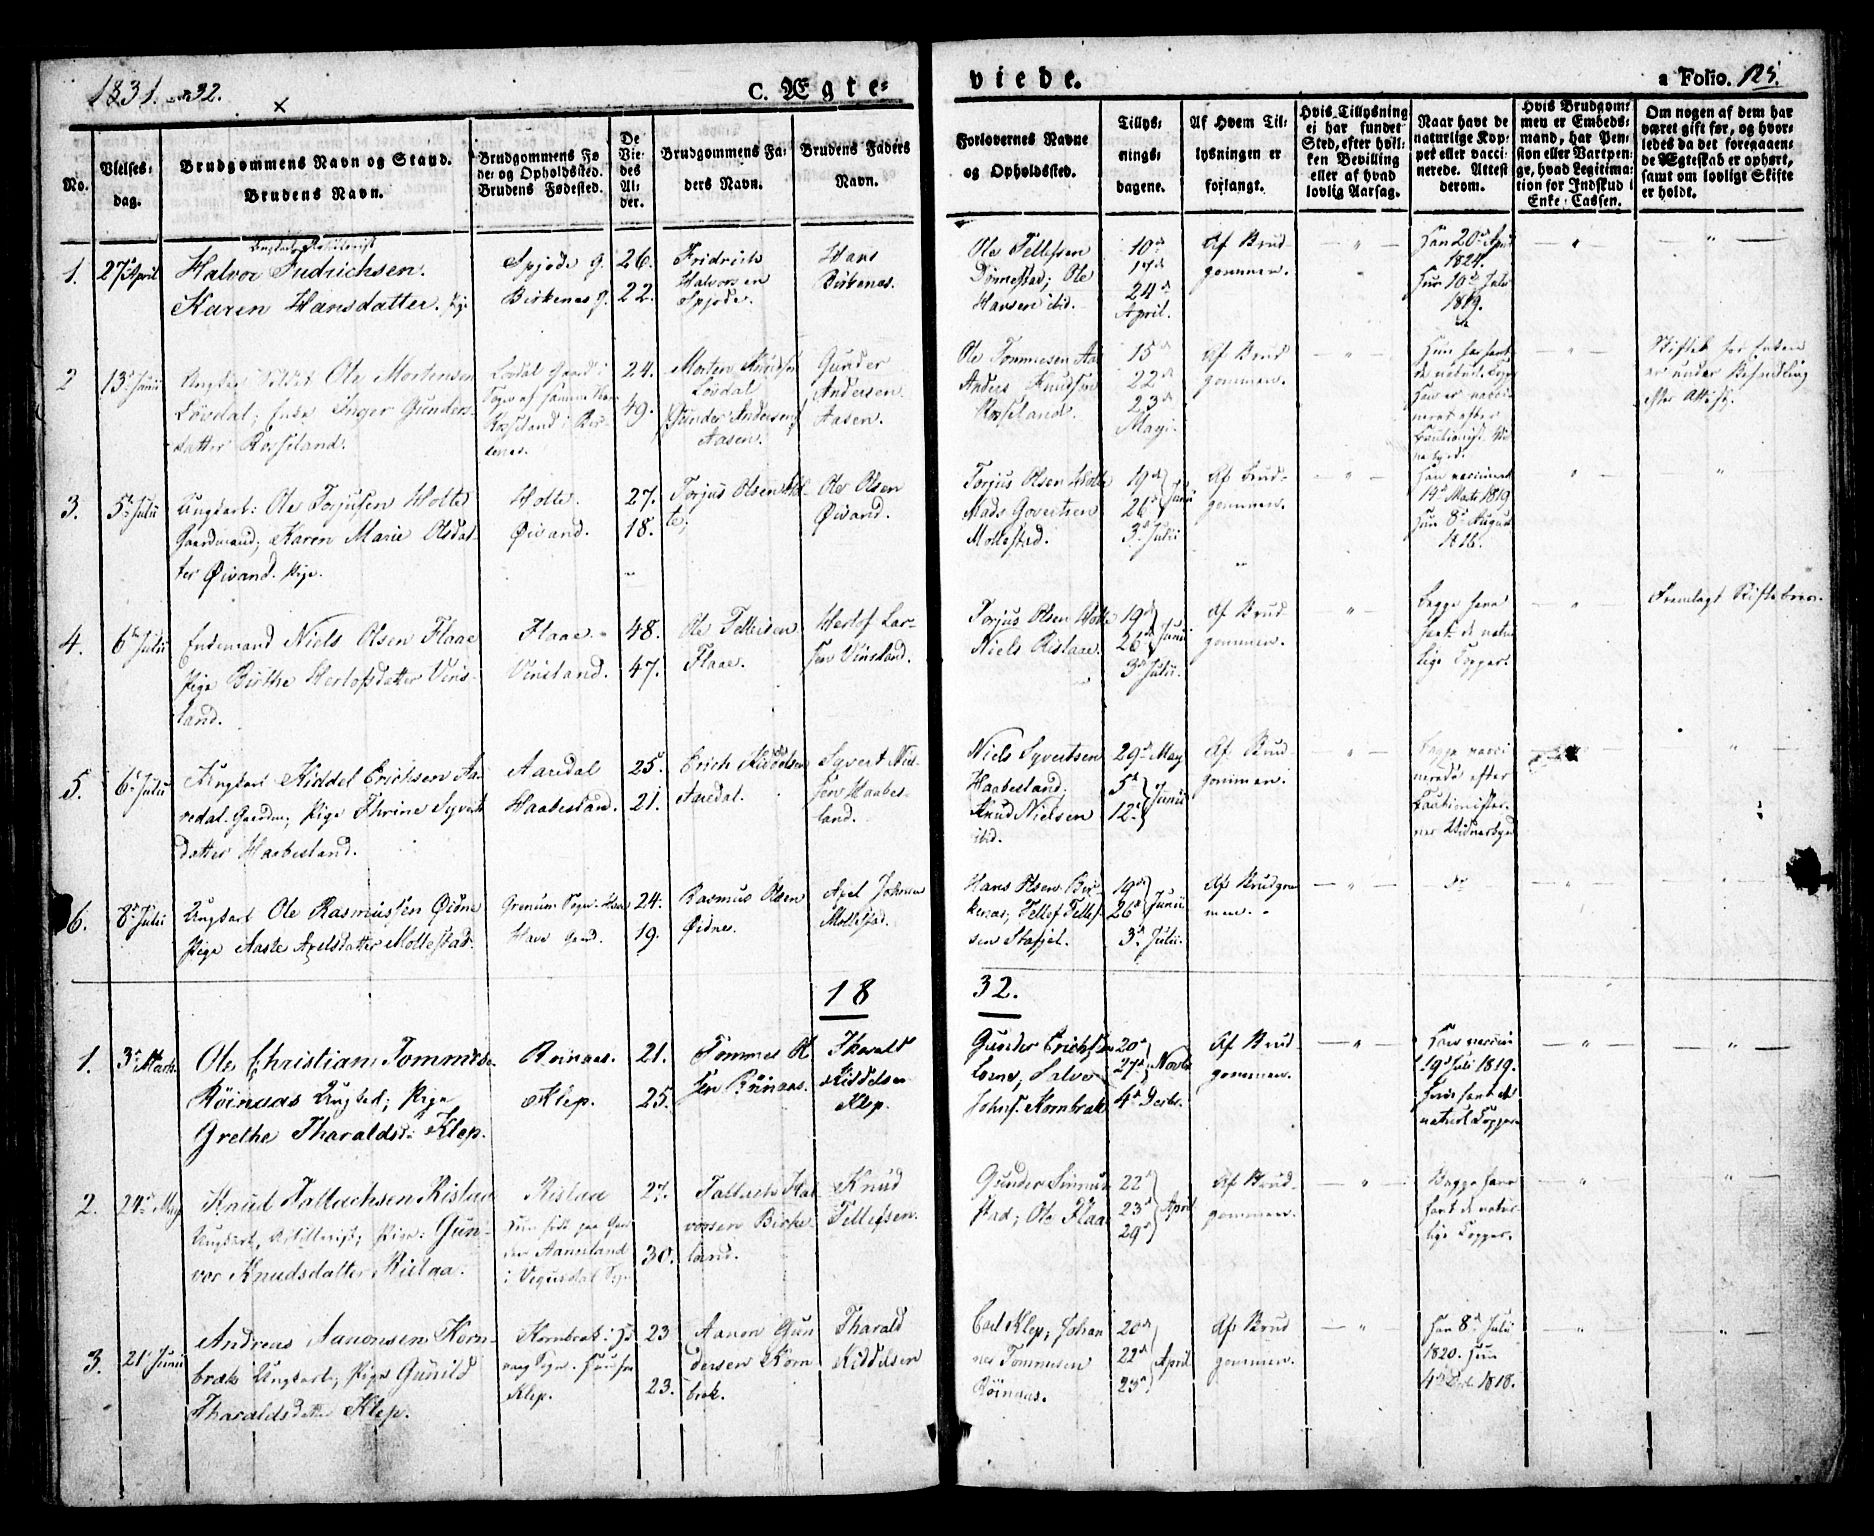 1831. og 32.
C. Ægteviede.
a Folio. 125.
No.
Vielses-dag.
Brudgommens Navn og Stand. Brudens Navn.
BrudgommensFøde- og Opholdssted. Brudens Fødested.
De Viedes Alder.
Brudgommens Faders Navn.
Brudens Faders Navn.
Forlovernes Navne og Opholdssted.
Tillysningsdagene.
Af Hvem Tillysningen er forlangt.
Hvis Tillysning ei har fundet Sted, efter hvilken Bevilling eller af hvad lovlig Aarsag.
Naar havt de naturlige Kopper eller vaccinerede. Attest derom.
Hvis Brudgommen er Embedsmand, har Pension eller Vartpenge, hvad Legitimation for Indskud i Enke-Cassen.
Om nogen af dem har været gift før, og hvorledes da det foregaaende Ægteskab er ophørt, samt om lovligt Skifte er holdt.
1. 27de April
Halvor Fridrichsen.
Karen Hansdatter. Pige
Spjode g.
Birkenes g.
26.
22.
Fridrich
Halvorsen
Spjode.
Hans
Birkenes.
Ole Tellefsen
Dønnestad; Ole
Hansen ibid.
10de
17de
24de
April.
Af Brud-
gommen.
Han 20de April
1824.
Hun 10de Juli
1819.
2 13de Junii
Ole Mortensen
Løvdal; Enke Inger Gunders-
datter Rosseland.
Løvdal Gaard i
Rosseland i Bir-
kenes.
24.
49.
Morten Knudsen
Løvdal
Gunder Andersen
Aasen.
Gunder
Andersen
Aasen.
Ole Tommesen
Anders Knudsen
Rosseland.
15de
22de
23de
Maji
Af Brud
gommen.
Hun har havt
de naturl. Kopp.
Han er vacci-
neret efter
Skiftet efter Enken
er under Behandling
efter Attest.
3. 5te Julii
Ungkarl: Ole Torjusen Holte
Gaardmand; Karen Marie Olsdat-
ter Øivand. Pige.
Holte.
Øivand.
27.
18.
Torjus Olsen Hol-
te;
Ole Olsen
Øivand.
Torjus Olsen Holte
Mads Govertsen
Mollestad.
19de
26de Junii
3de Julii
Af Brud-
gommen.
Han vaccineret
14de Marts 1819
Hun 8de August
4. 6te Julii
Enkemand Niels Olsen Flaae
Pige Birthe Herlofsdatter Vins-
land.
Flaae.
Vinsland.
48.
47.
Ole Tellefsen
Flaae.
Herlof Lar-
sen Vinsland.
Torjus Olsen Holte
Niels Rislaae.
19de
26de Junii
3de Julii.
Af Brud
gommen.
Begge have
havt de natur
lige Kopper.
Fremlagt Skiftebrev.
5. 6te Julii
Ungkarl Kiddel Erichsen Aa-
redal. Gaardm; Pige Thrine Syverts
datter Haabesland.
Aaredal
Haabesland.
25.
21.
Erich Kiddelsen
Aaredal.
Syvert Niel-
sen Haabes-
land.
Niels Syvertsen
Haabesland;
Knud Nielsen
ibid.
29de May
5te
12te Junii
Af Brud-
gommen.
Begge vacci
nerede efter
6. 8de Julii
Ungkarl Ole Rasmussen Øidne
Pige Aaste Axelsdatter Mollestad.
24.
19.
Rasmus Olsen
Øidnes.
Axel Johnsen
Mollestad.
Hans Olsen Bir-
kenes; Tellef Tellef-
sen Stapjel.
19de
26de Junii
3de Julii.
Af Brudgom
men.
do
1832.
1. 3de Marts
Ole Christian Tommese
Røinaas Ungkarl; Pige
Grethe Tharaldsd: Klep.
Røinaas.
Klep.
21.
25.
Tommes Ol
sen Røinaas.
Tharald
Kiddelsen
Klep.
Gunder Erichsen
Salve
Johns. Kornbrek
20de
27de Novbr
4de Decbr.
Af Brud-
gommen.
Han vaccin
19de Juli 1819.
Hun havt de
naturl. Kopper.
2. 24de May
Knud Tallachsen Rislaa
Ungkarl, Pige: Gun-
vor Knudsdatter Rislaa.
Rislaa
Hun født paa Gaar
den Aanesland
i Vegusdal Sogn
27.
30.
Tallach Hal
vorsen Birke-
land.
Knud
Tellefsen.
Gunder Sinnus
stad; Ole Flaa
22de
23de April
29de
Af Brud-
gommen.
Begge have
havt de natur-
lige Kopper.
3. 21de Junii
Andreas Aanonsen Korn-
brek Ungkarl; Pige Gunild
Tharaldsdatter Klep.
Kornbrek i
Klep.
23
23.
Aanon Gun
dersen Korn
brek.
Tharald
Kiddelsen
Carl Klep; Johan
nes Tommesen
Røinaas.
20de
22de April
23de
Af Brud
gommen.
Han 8de Julii
1820. Hun
4de Dec. 1818.